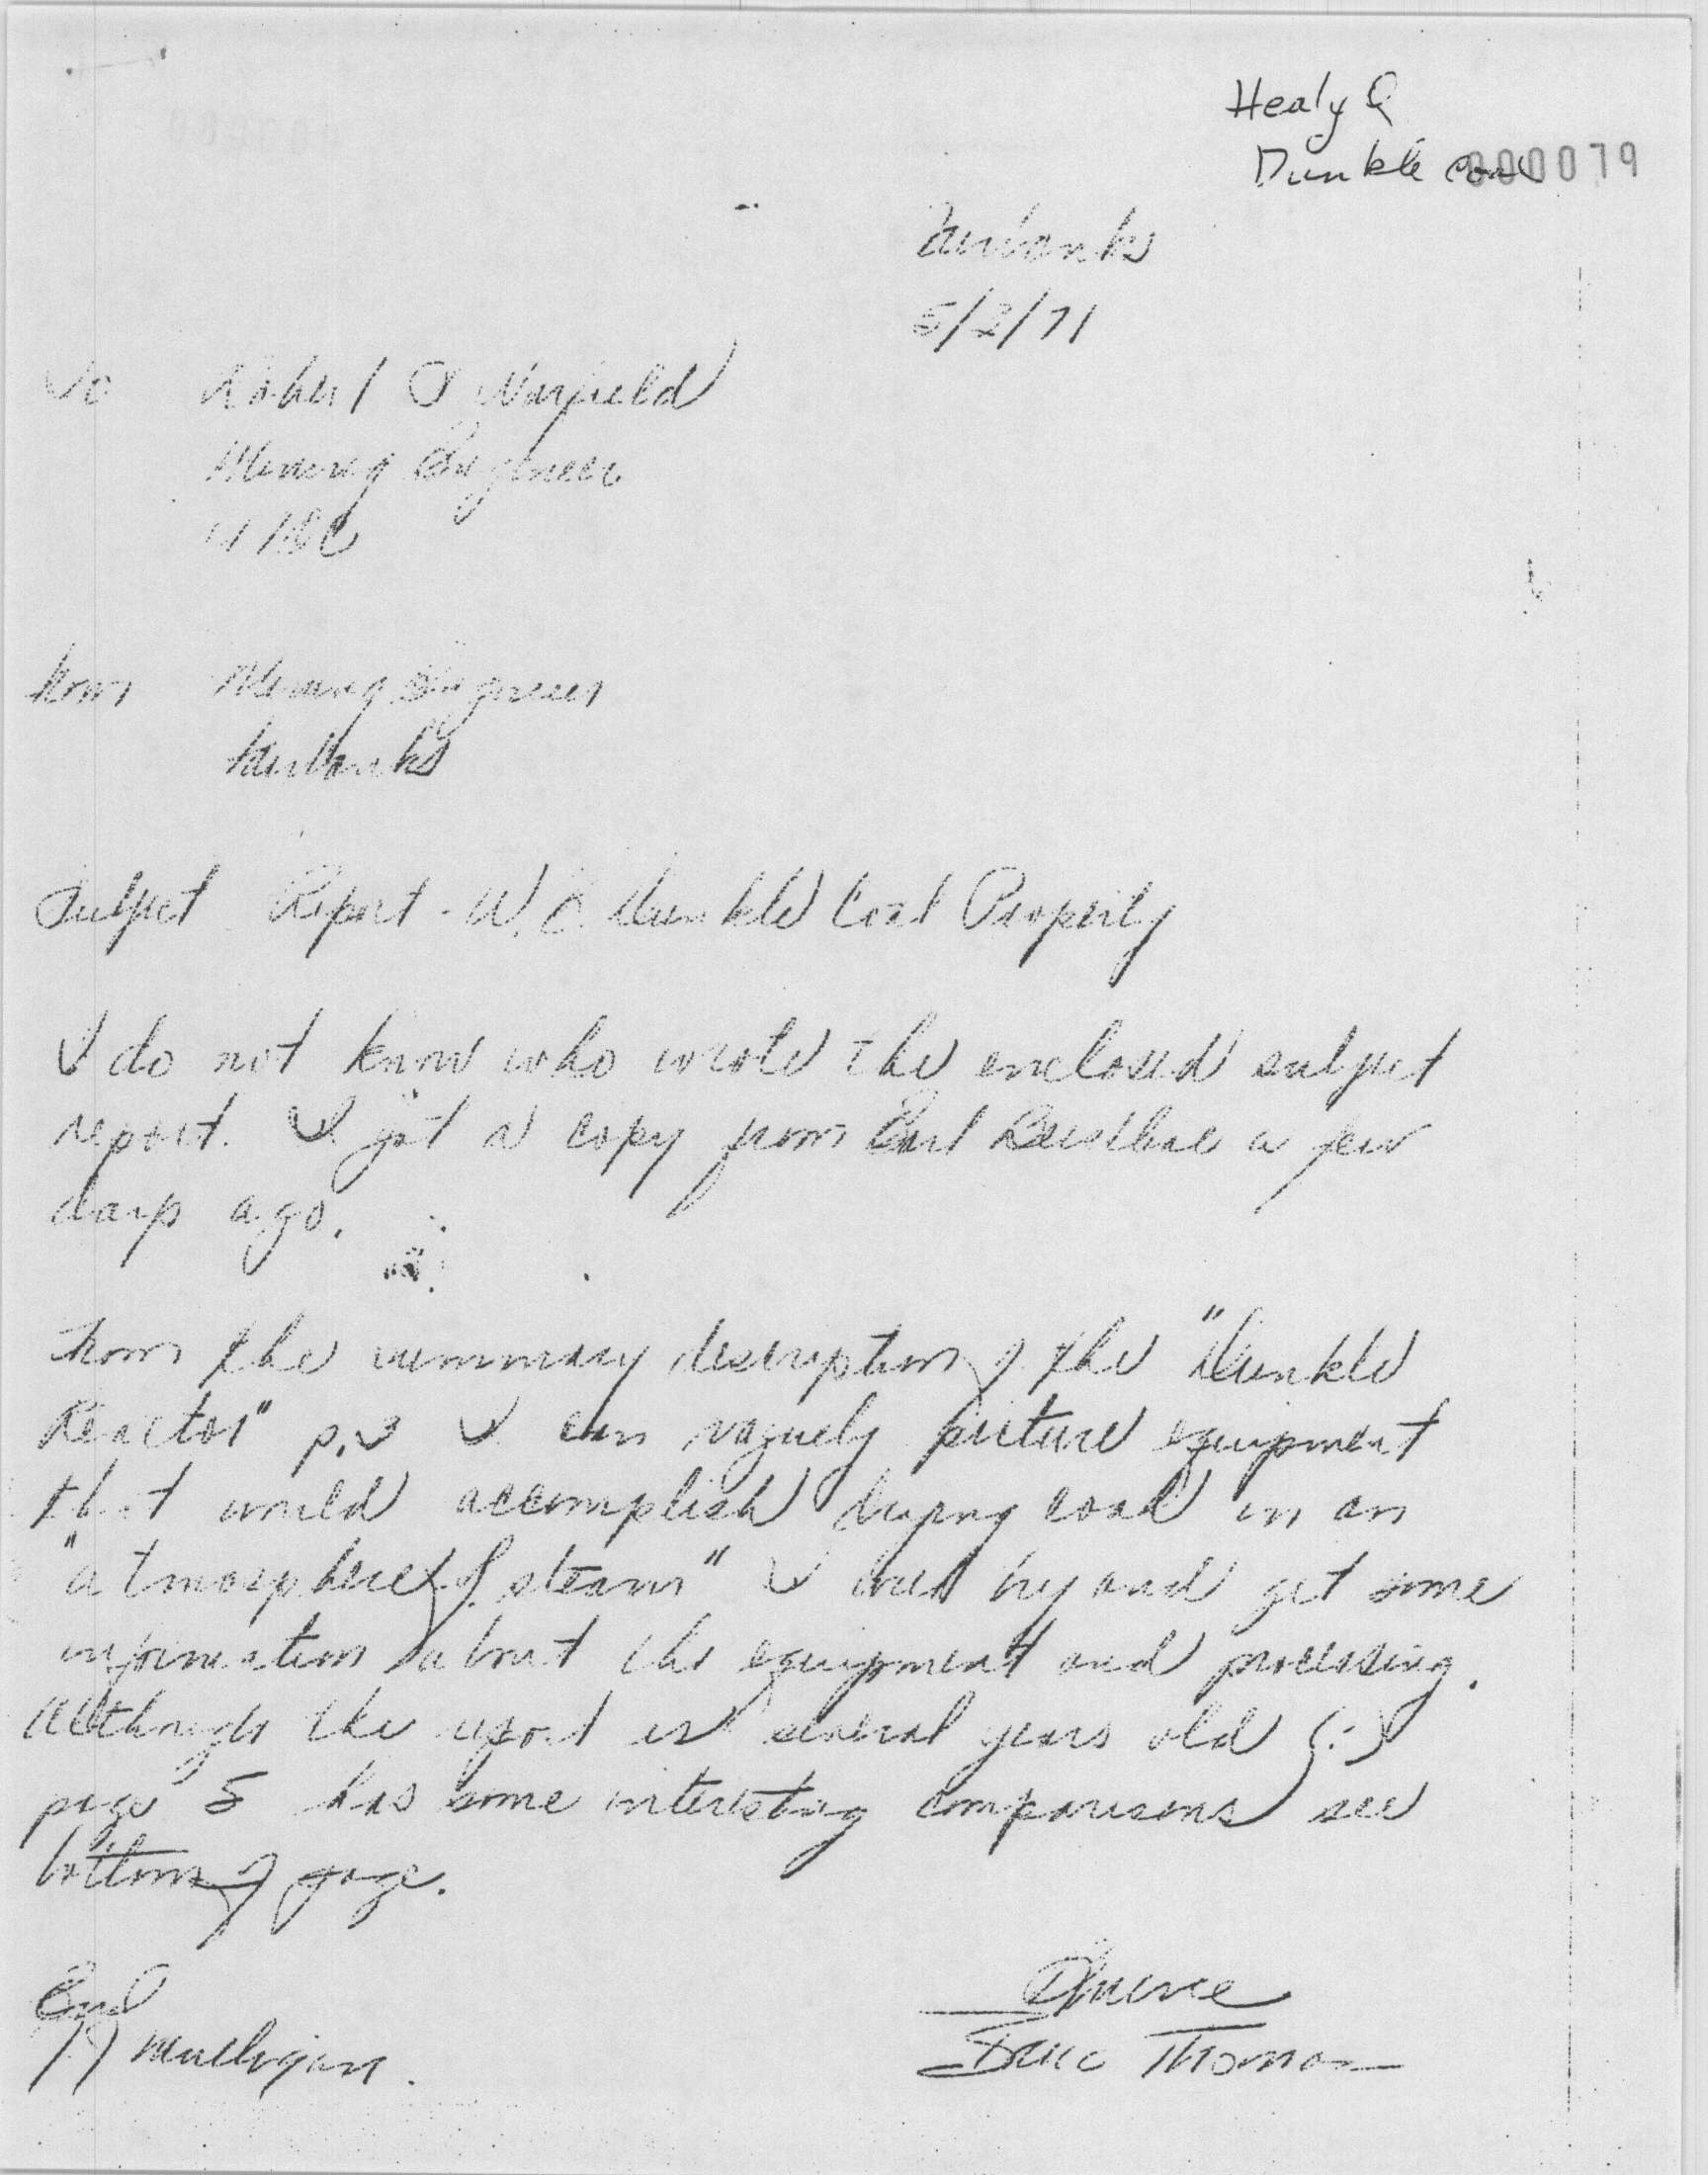 Healy Q
Dunkle coal 000079
Fairbanks
5/2/71
To Robert S Warfield
Mining Engineer
From Mining Engineer
Fairbanks
Subject Report - W. E. Dunkle Coal Property
I do not know who wrote the enclosed subject
report. I got a copy from Earl Beistline a few
days ago.
From the summary description of the "Dunkle
Reactor" p. I can vaguely picture equipment
that would accomplish drying coal in an
"atmosphere of steam" I will try and get some
information about the equipment and processing.
Although the report is several years old (?)
page 5 has some interesting comparisons see
bottom of page.
Encl
Mulligan.
Bruce Thomas